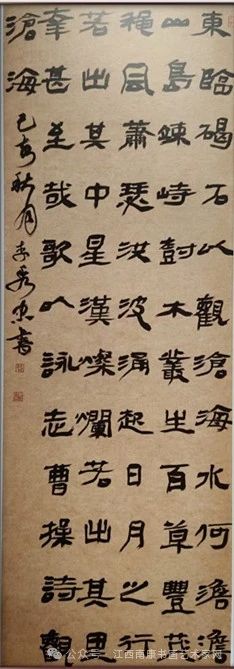 東臨碣石以觀滄海水何澹澹
山島竦峙樹木叢生百草豐茂
穐風蕭瑟洪波涌起日月之行
若出其中星漢燦爛若出其里
幸甚至哉歌以詠志曹操詩觀
滄海
己亥秋月李秀書
公众号 · 江西南康书画艺术家网